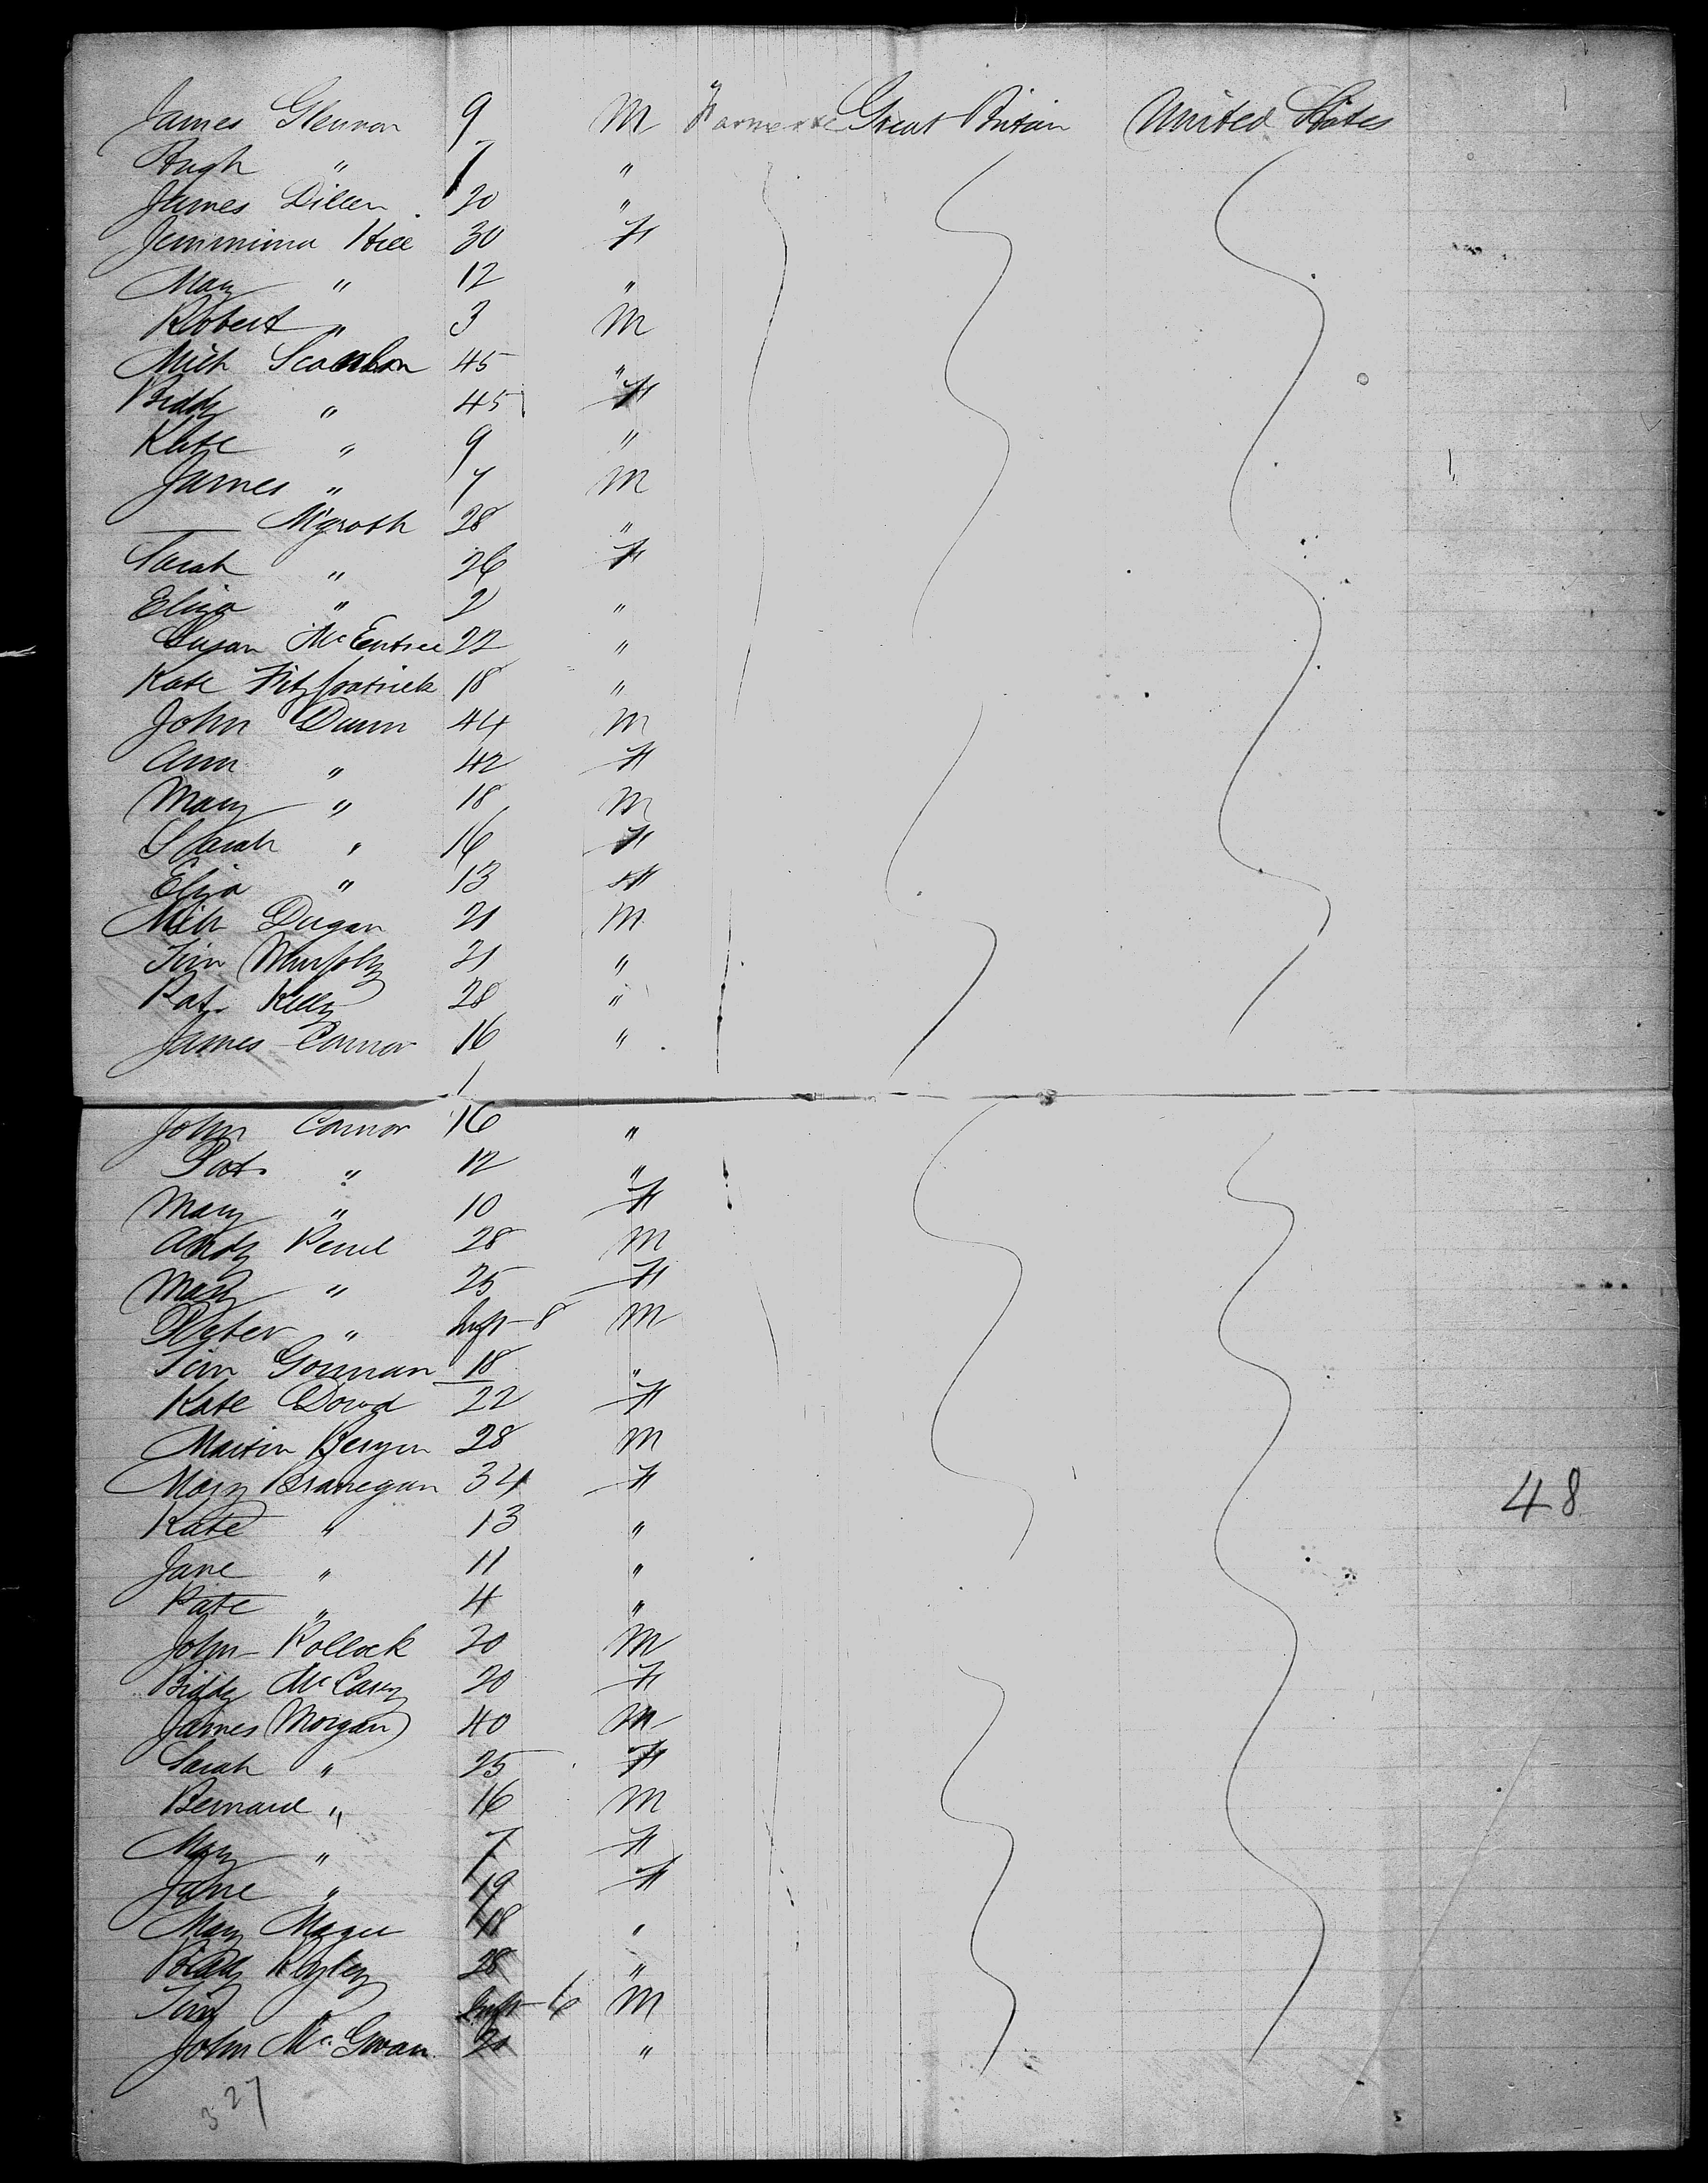 James Glennon 9 M Farmer &c Great Britain United States
Hugh " 7 "
James Dillen 20 "
Jemmima Hill 30 F
Mary " 12 "
Robert " 3 M
Mich Scanlon 45 "
Biddy " 45 F
Kate " 9 "
James " 7 M
—— McGrath 28 "
Sarah " 26 F
Eliza " 2 "
Susan McEntree 22 "
Kate Fitzpatrick 18 "
John Dunn 44 M
Ann " 42 F
Mary " 18 M
Sarah " 16 F
Eliza " 13 F
Mich Dugan 21 M
Tim Murphy 21 "
Pat. Kelly 28 "
James Connor 16 "
John Connor 16 "
Pat. " 12 "
Mary " 10 F
Andy 28 M
Mary " 25 F
Peter " Inft - 8 M
Tim Gorman 18 "
Kate Dowd 22 F
Martin Bergin 28 M
Mary Branegan 34 F
Kate " 13 "
Jane " 11 "
Kate " 4 "
John Pollock 20 M
Biddy McCasey 20 F
James Morgan 40 M
Sarah " 25 F
Bernard " 16 M
Mary " 7 F
Jane " 19 F
Mary Magee 18 "
Biddy Reyley 28 "
Tim Inft - 6 M
John McGowan 20 "
48
327